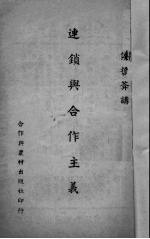 連鎖與合作主義
合作與農村出版社印行